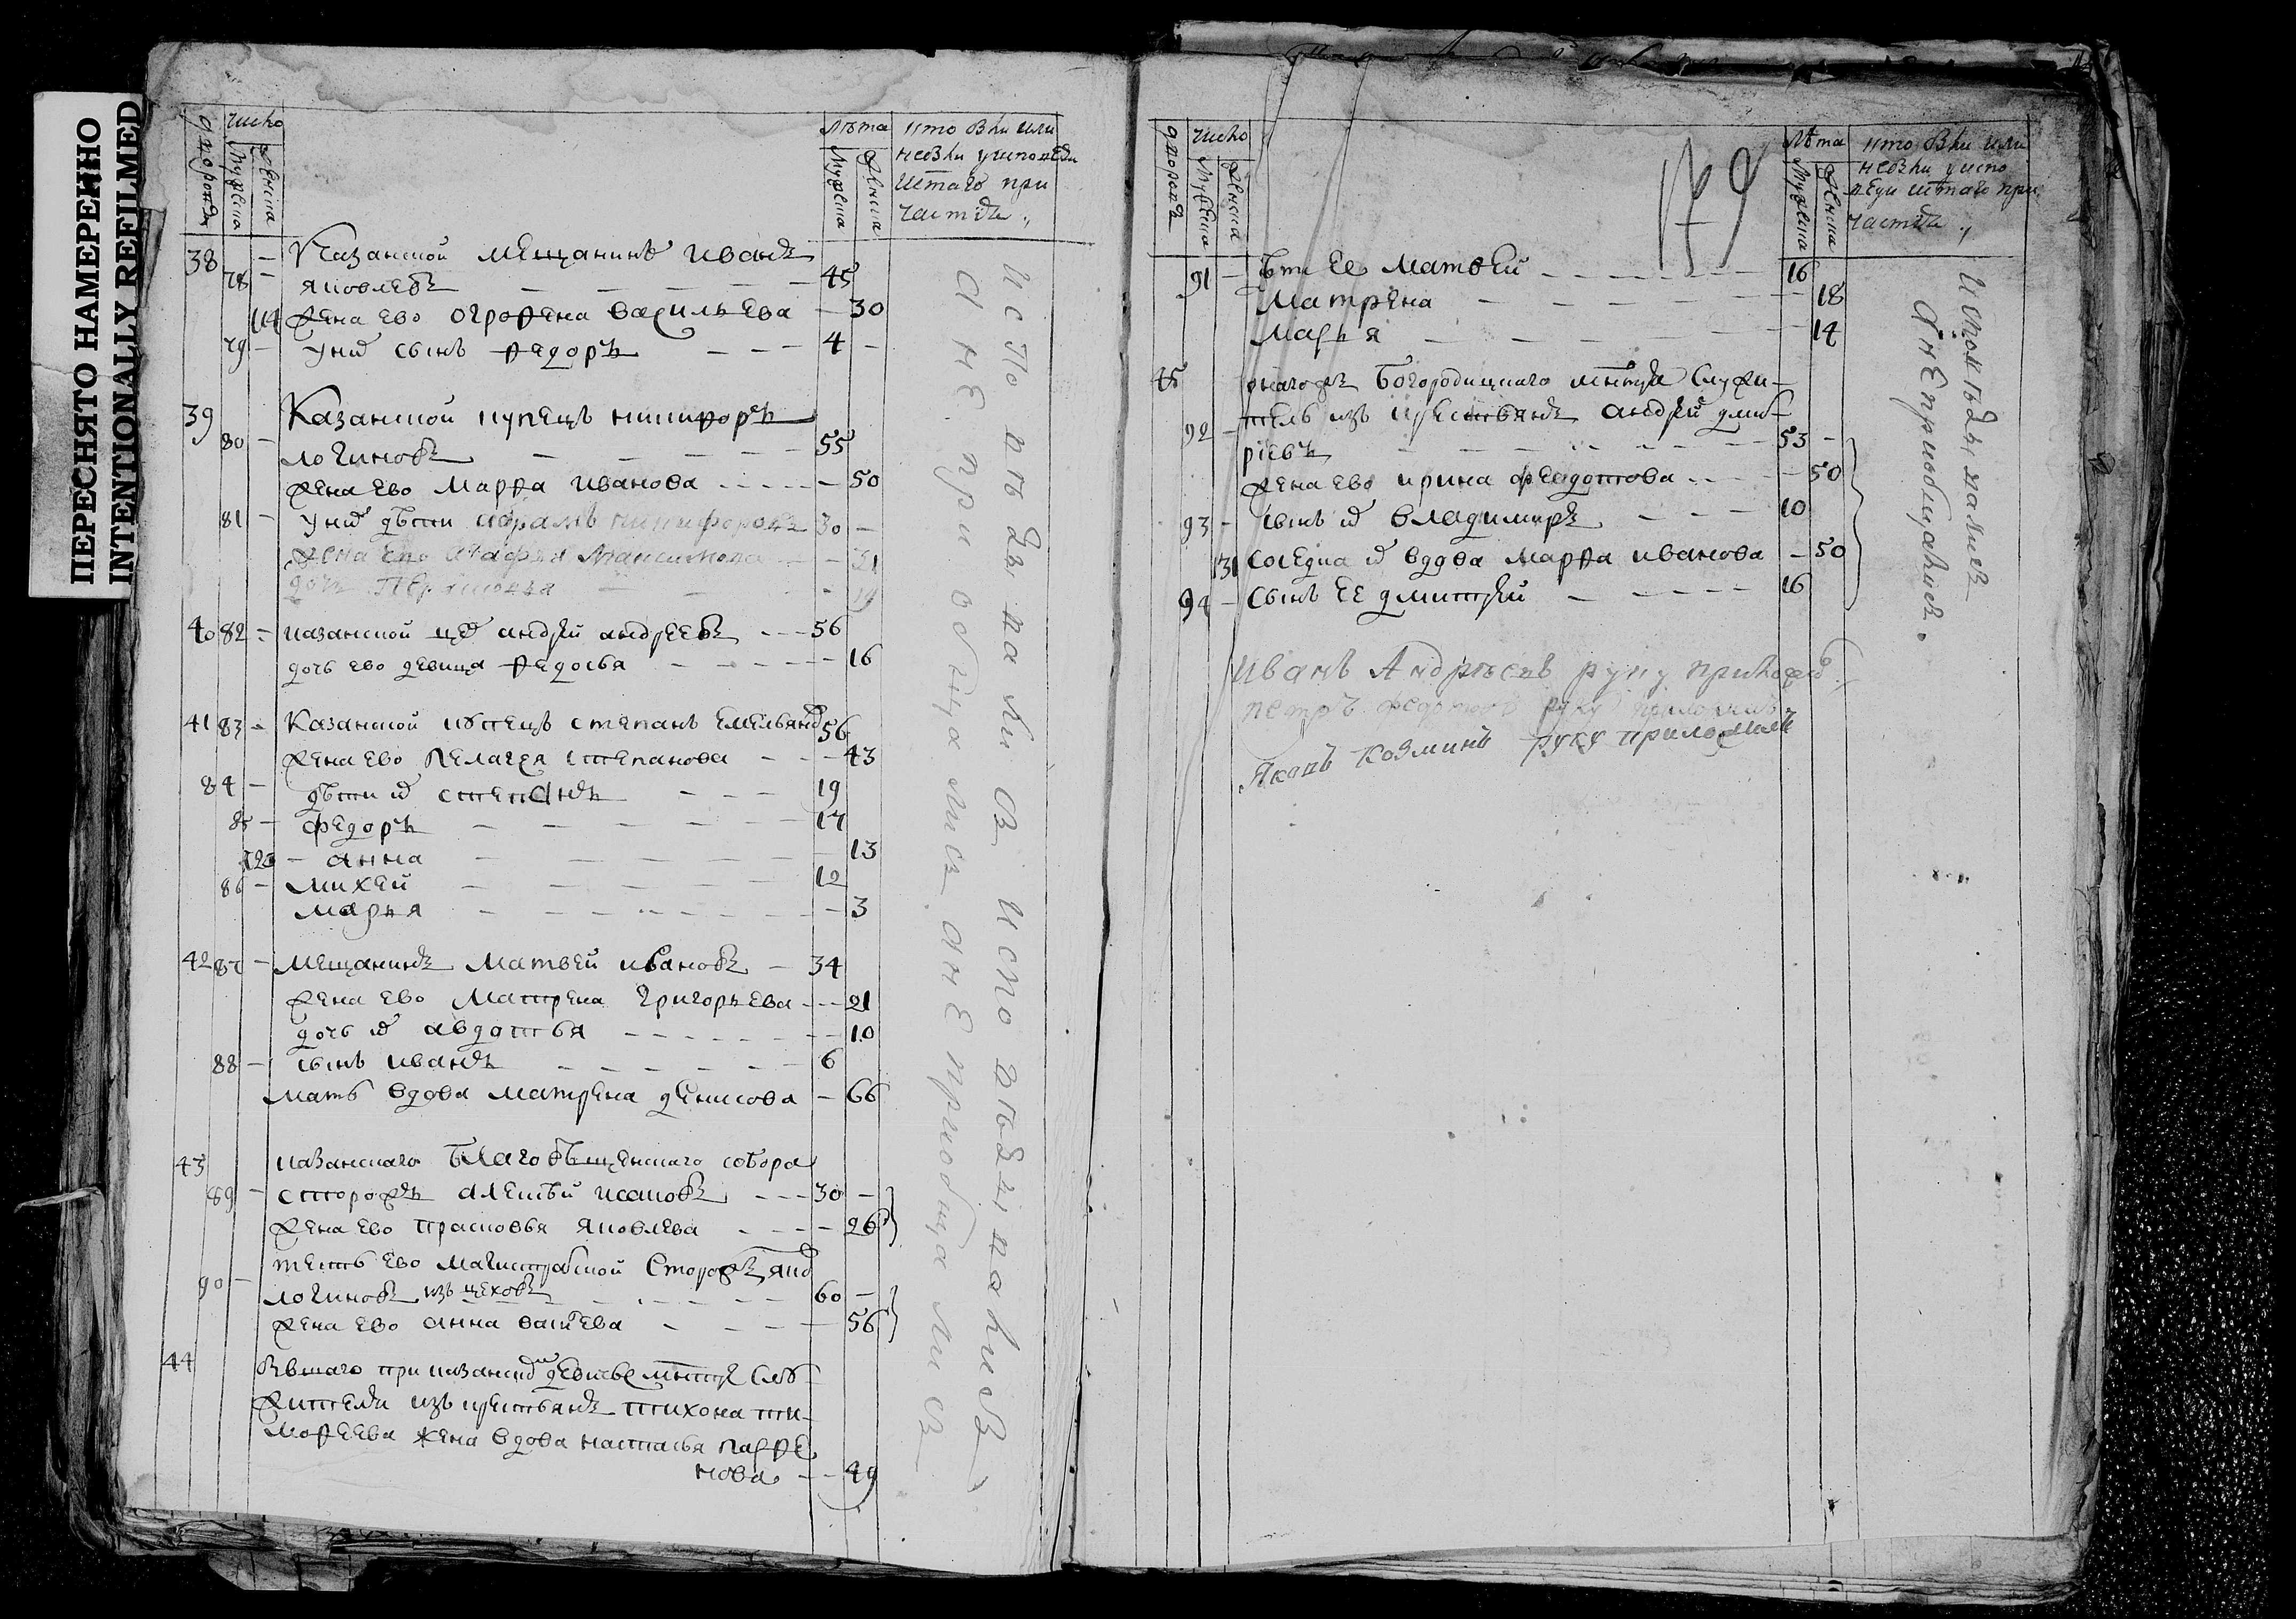 ПЕРЕСНЯТО НАМЕРЕННО
INTENTIONALLY REFILMED
число
мужеска
женска
лѣта
мужеска
женска
кто были или
небыли уисповѣди
истаго при
частїя
38 — Казанской мещанинъ иванъ
78 — яковлевъ — 45
114 жена ево огрофена васильева — 30
79 — у них сынъ федоръ — 4 —
39 Казанской купецъ никифоръ
80 — логиновъ — 55
жена ево марфа иванова — 50
81 — у них дѣти абрамъ никифоровъ 30 —
жена ево агафья максимова — 21
дочь
40 82 — казанской цех андрей андреевъ — 56
дочь ево девица федосья — 16
41 83 — Казанской купецъ степанъ емельянов 56
жена ево пелагея степанова — 43
84 — дѣти их степанъ — 19
85 — федоръ — 17
123 — анна — 13
86 — михей — 12
марья — 3
42 87 — мещанинъ матвей ивановъ — 34
жена ево матрена григорьева — 21
дочь их авдотья — 10
88 — сынъ иванъ — 6
мать вдова матрена денисова — 66
43 казанскаго благовѣщенскаго собора
89 — сторожъ алексѣй исаковъ — 30 —
жена ево прасковья яковлева — 26
тесть ево магистратской сторожъ яков
90 — логиновъ изъ цеховъ — 60 —
жена ево анна васильева — 56
44 бывшаго при казанском девичье мнстре слу-
жителя изъ крестьянъ тихона ти-
мофеева жена вдова настасья парфе
нова — 49
исповѣдывались исповѣдывались
а не приобщались а не приобщались
179
число
мужеска
женска
лѣта
мужеска
женска
кто были или
небыли уиспо
веди истаго при
частїя
91 — дѣти ее матвей — 16
матрена — 18
марья — 14
45 онагожъ богородицкаго мнстра служи-
92 — тель изъ крестьянъ андрей дмит-
рїевъ — 53 —
жена ево ирина федотова — 50
93 — сынъ их владимиръ — 10
131 соседка их вдова марфа иванова — 50
94 — сынъ ее дмитрей — 16
а не приобщались
Иванъ Андрѣевъ руку приложилъ
петръ федотовъ руку приложилъ
Яковъ Козминъ руку приложилъ